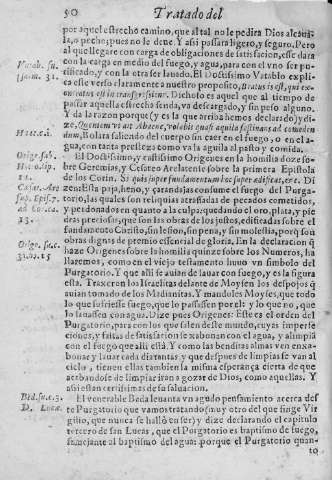 50
Tratado del
por aquel estrecho camino, que al tal no le pedira Dios alcaua-
la, o pecho; pues no le deue. Y assi passara ligero, y seguro. Pero
al que llegare con carga de obligaciones de satisfacion, esse dara
con la carga en medio del fuego, y agua, para con el vno ser pu-
rificado, y con la otra ser lauado. El Doctissimo Vatablo expli-
ca este verso claramente a nuestro proposito,
Dichoso es aquel que al tiempo de
passar aquella estrecha senda, va descargado, y sin peso alguno.
Y da la razon porque (y es la que arriba hemos declarado) y di-
ze,
dum, Bolara salticido del cuerpo sin caer en el fuego, o en el a-
gua, con tanta presteza como va la aguila al pasto y comida.
El Doctissimo, y castissimo Origenes en la homilia doze so-
bre Geremias, y Cesareo Arelatense sobre la primera Epistola
de los Corin. Si quis super fundamentum hoc super ædificat, &c. Di-
zen: Esta paja, heno, y çarandajas consume el fuego del Purga-
torio, las quales son reliquias atrassadas de pecados cometidos
y perdonados en quanto a la culpa: quedando el oro, plata, y pie
dras preciosas, que son las obras de los justos, edificadas sobre el
fundamento Christo, sin lesion, sin pena, y sin molestia, porq̃ son
obras dignas de premio essencial de gloria. En la declaracion q̃
haze Origenes sobre la homilia quinze sobre los Numeros, ha
llaremos, como en el viejo testamento huuo vn simbolo del
Purgatorio. Y que alli se auian de lauar con fuego, y es la figura
esta. Traxeron los Israelitas delante de Moysen los despojos q̃
auian tomado de los Madianitas. Y mandoles Moyses, que todo
lo que sufriesse fuego, que lo passassen por el: y lo que no, que
lo lauassen con agua. Dize pues Origenes: Este es el orden del
Purgatorio, para con los que salen deste mundo, cuyas imperfe
ciones, y faltas de satisfacion se xabonan con el agua, y alimpia
con el fuego que alli està. Y como las benditas almas ven enxa-
bonar y lauar cada dia tantas, y que despues de limpias se van al
cielo, tienen ellas tambien la misma esperança cierta de que
acabandose de limpiar iran a gozar de Dios, como aquellas. Y
assi estan certissimas de su saluacion.
El venerable Beda leuanta vn agudo pensamiento acerca des
te Purgatorio que vamos tratando (muy otro del que finge Vir
gilio, que nunca se hallò en ser) y dize declarando el capitulo
tercero de san Lucas, que el Purgatorio es baptismo de fuego,
semejante al baptismo del agua: porque el Purgatorio quan-
to
Orige. su. c.
31. nu. 15
Bed. su. c. 3.
D. Lucæ.